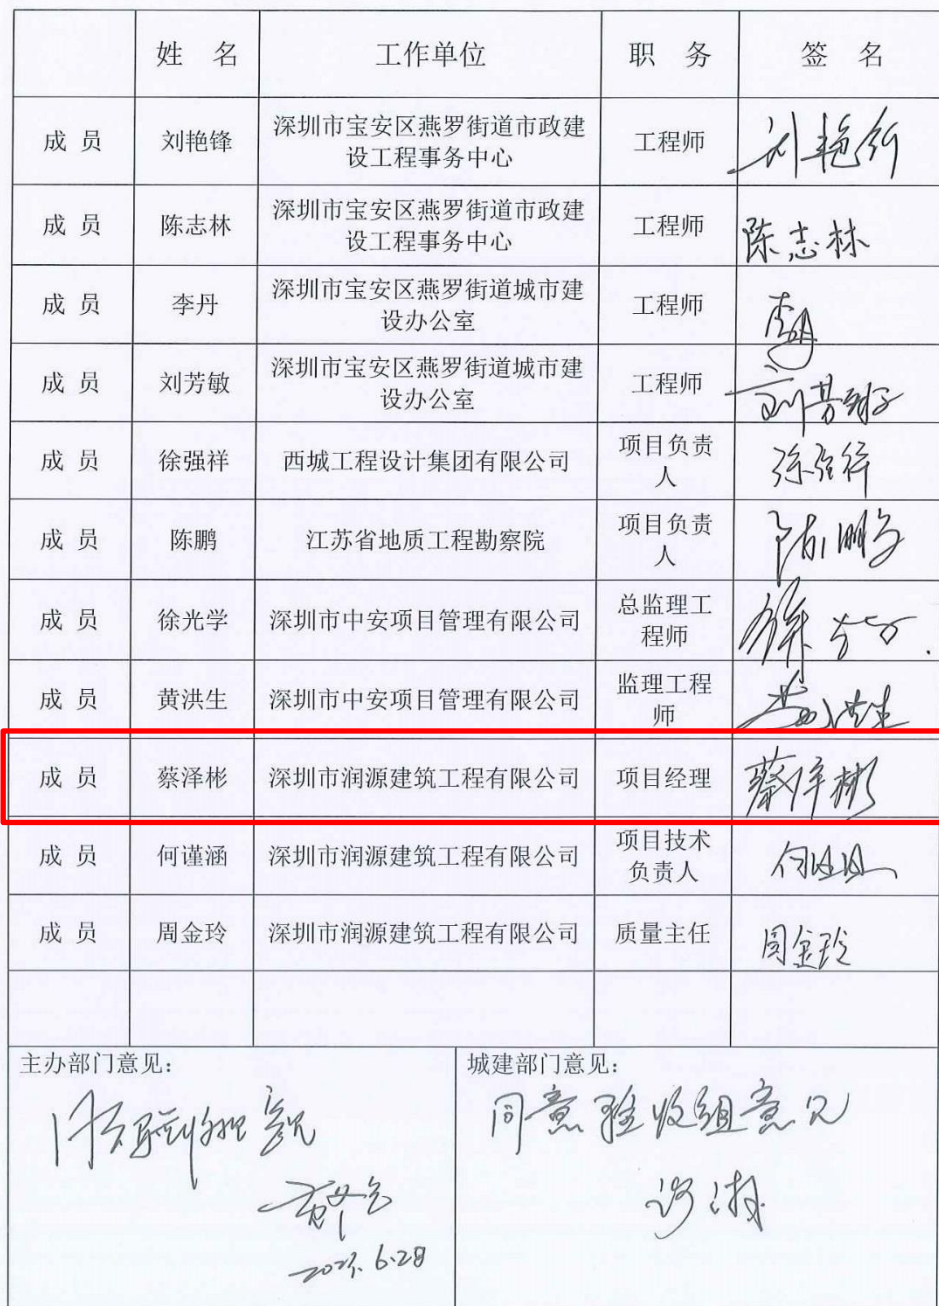 姓 名 工作单位 职 务 签 名
成 员 刘艳锋 深圳市宝安区燕罗街道市政建 工程师 刘艳锋
设工程事务中心
成 员 陈志林 深圳市宝安区燕罗街道市政建 工程师 陈志林
设工程事务中心
成 员 李丹 深圳市宝安区燕罗街道城市建 工程师 李丹
设办公室
成 员 刘芳敏 深圳市宝安区燕罗街道城市建 工程师 刘芳敏
设办公室
成 员 徐强祥 西城工程设计集团有限公司 项目负责 徐强祥
人
成 员 陈鹏 江苏省地质工程勘察院 项目负责 陈鹏
人
成 员 徐光学 深圳市中安项目管理有限公司 总监理工
程师
成 员 黄洪生 深圳市中安项目管理有限公司 监理工程 黄洪生
师
成 员 蔡泽彬 深圳市润源建筑工程有限公司 项目经理 蔡泽彬
成 员 何谨涵 深圳市润源建筑工程有限公司 项目技术
负责人
成 员 周金玲 深圳市润源建筑工程有限公司 质量主任 周金玲
主办部门意见：
6.28
城建部门意见：
同意验收组意见